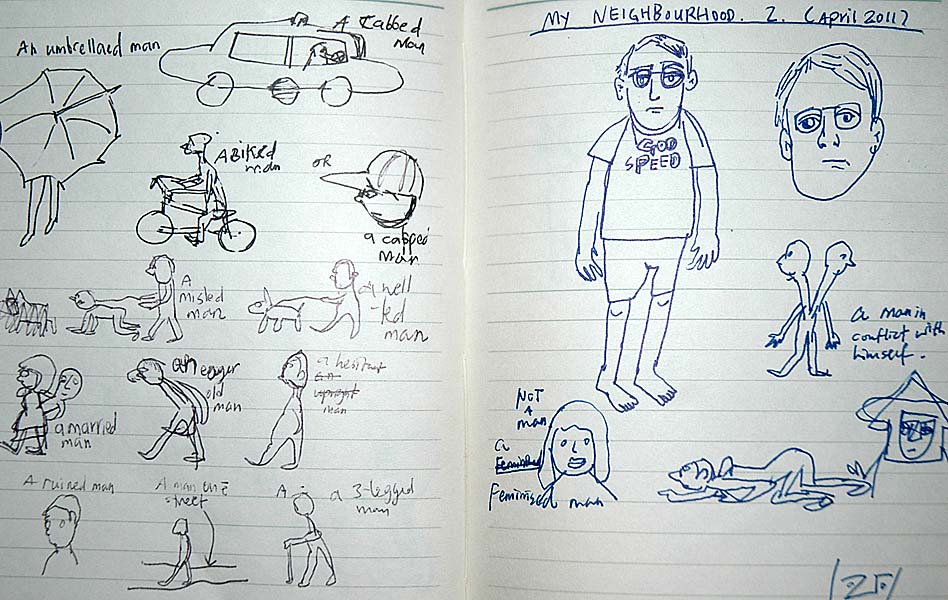 An umbrellaed man
A Cabbed
Man
A Biked
man
OR
a capped
Man
A
misled
man
A well
-led
man
a married
man
an eager
old
man
a hesitant
upright
man
A ruined man
A man one
street
A
a 3-legged
man
MY NEIGHBOURHOOD. 2. (April 2011)
GOD
SPEED
a man in
conflict with
himself.
NOT
a
man
a
Feminised man